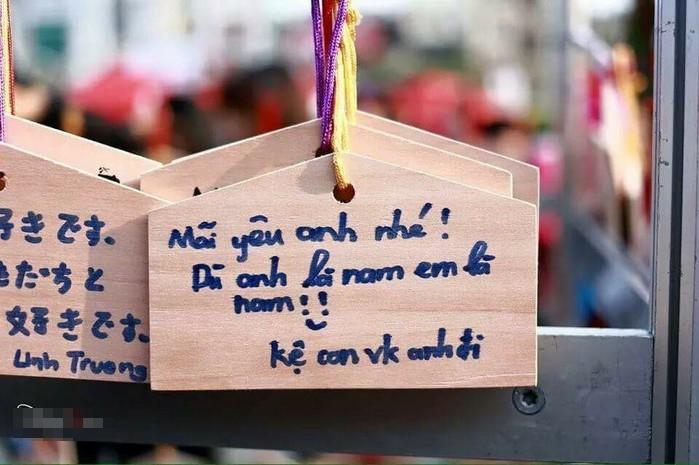 Mãi yêu anh nhé!
Dù anh là nam em là
nam!!
kệ con vk anh đi
好きです。
たちと
好きです。
Linh Trương